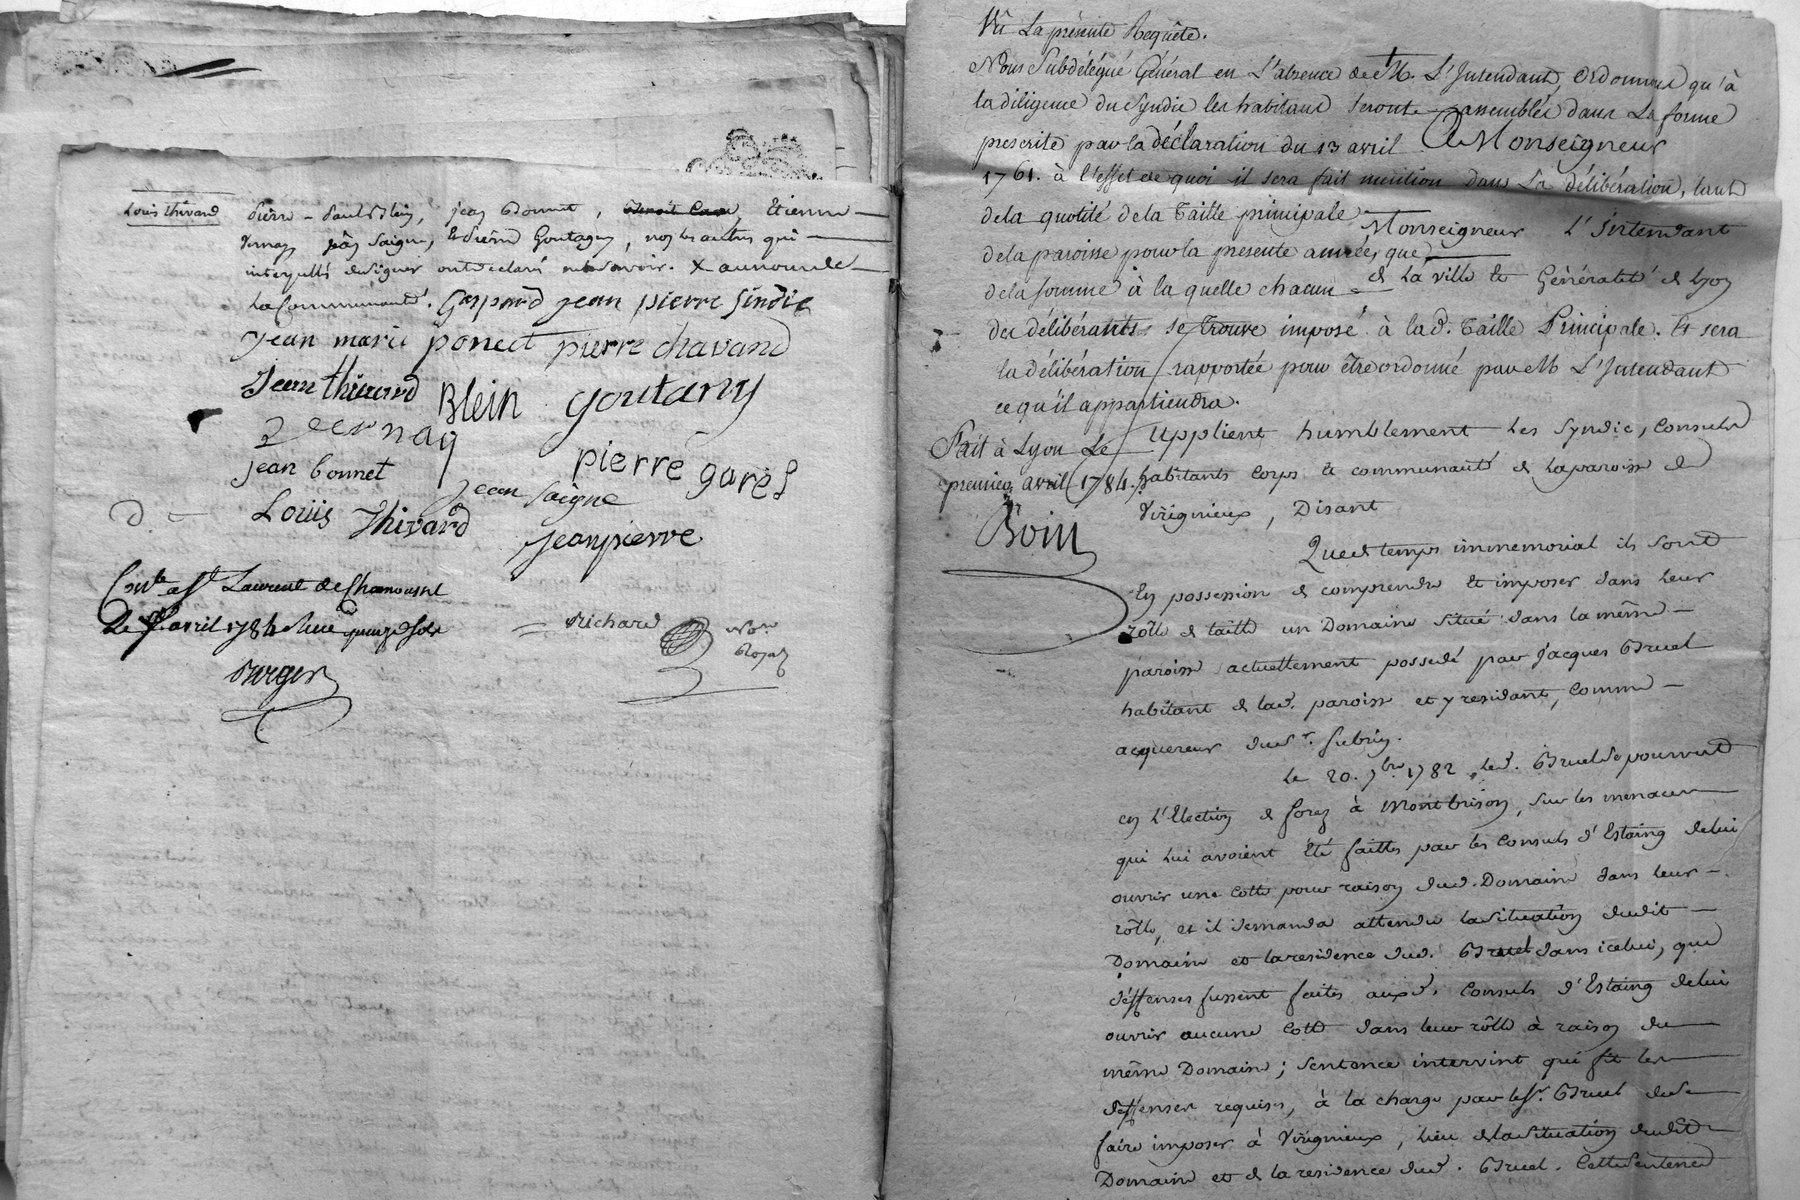 Louis thivard
pierre - Paul Blein, jean Bonnet, Benoit Etienne
Vernay jean Saigne, & Pierre Goutagny, non les autres qui
interpellés de signer ont declaré ne savoir. X au nom de
La Communauté. Gaspard jean pierre Sindic
jean marie poncet pierre chavand
Jean thivard Blein goutany
vernay
jean bonnet pierre garel
jean Saigne
Louiis thivard jeanpierre
Con.le a St Laurent de Chamousset
Le avril 1784 Reçu quinze sols
Richard No.re Royal
Berger
Vû La présente Requête.
Nous Subdélégué Général en L'absence de M. L'Intendant, Ordonnons qu'à
la diligence du Syndic les habitans seront assemblés dans La forme
prescrite par la déclaration du 13 avril
1761. à l'effet de quoi il sera fait mention dans La délibération, tant
de la quotité de la Taille principale
de la paroisse pour la presente année, que
de la somme à la quelle chacun
des délibérants se trouve imposé à la d. Taille Principale. Et sera
la délibération rapportée pour être ordonné par M L'Intendant
ce qu'il appartiendra.
Fait à Lyon Le
premier avril 1784.
Boin
A Monseigneur
Monseigneur L'intendant
de La ville et Généralité de Lyon
Supplient humblement les Syndic, Consuls
habitants corps et communauté de la paroisse de
Virignieux, Disant
Que de temps immemorial ils sont
en possession de comprendre et imposer dans leur
rôlle de taille un Domaine situé dans la même
paroisse actuellement possedé par Jacques Bruel
habitant de lad. paroisse et y residant, comme
acquereur du Sr. Subrin.
Le 20. 7bre 1782 led. Bruel se pourvut
en L'Election de forez à Montbrison, sur les menaces
qui lui avoient été faittes par les Consuls d'Estaing de lui
ouvrir une cotte pour raison dud. Domaine dans leur
rôlle, et il demanda attendu la situation dudit
Domaine et la residence dud. Bruel dans icelui, que
deffenses fussent faites auxd. Consuls d'Estaing de lui
ouvrir aucune cotte dans leur rôlle à raison du
même Domaine; Sentence intervint qui fit les
deffenses requises, à la charge par le Sr. Bruel de se
faire imposer à Virignieux, lieu de la situation dudit
Domaine et de la residence dud. Bruel. Cette Sentence